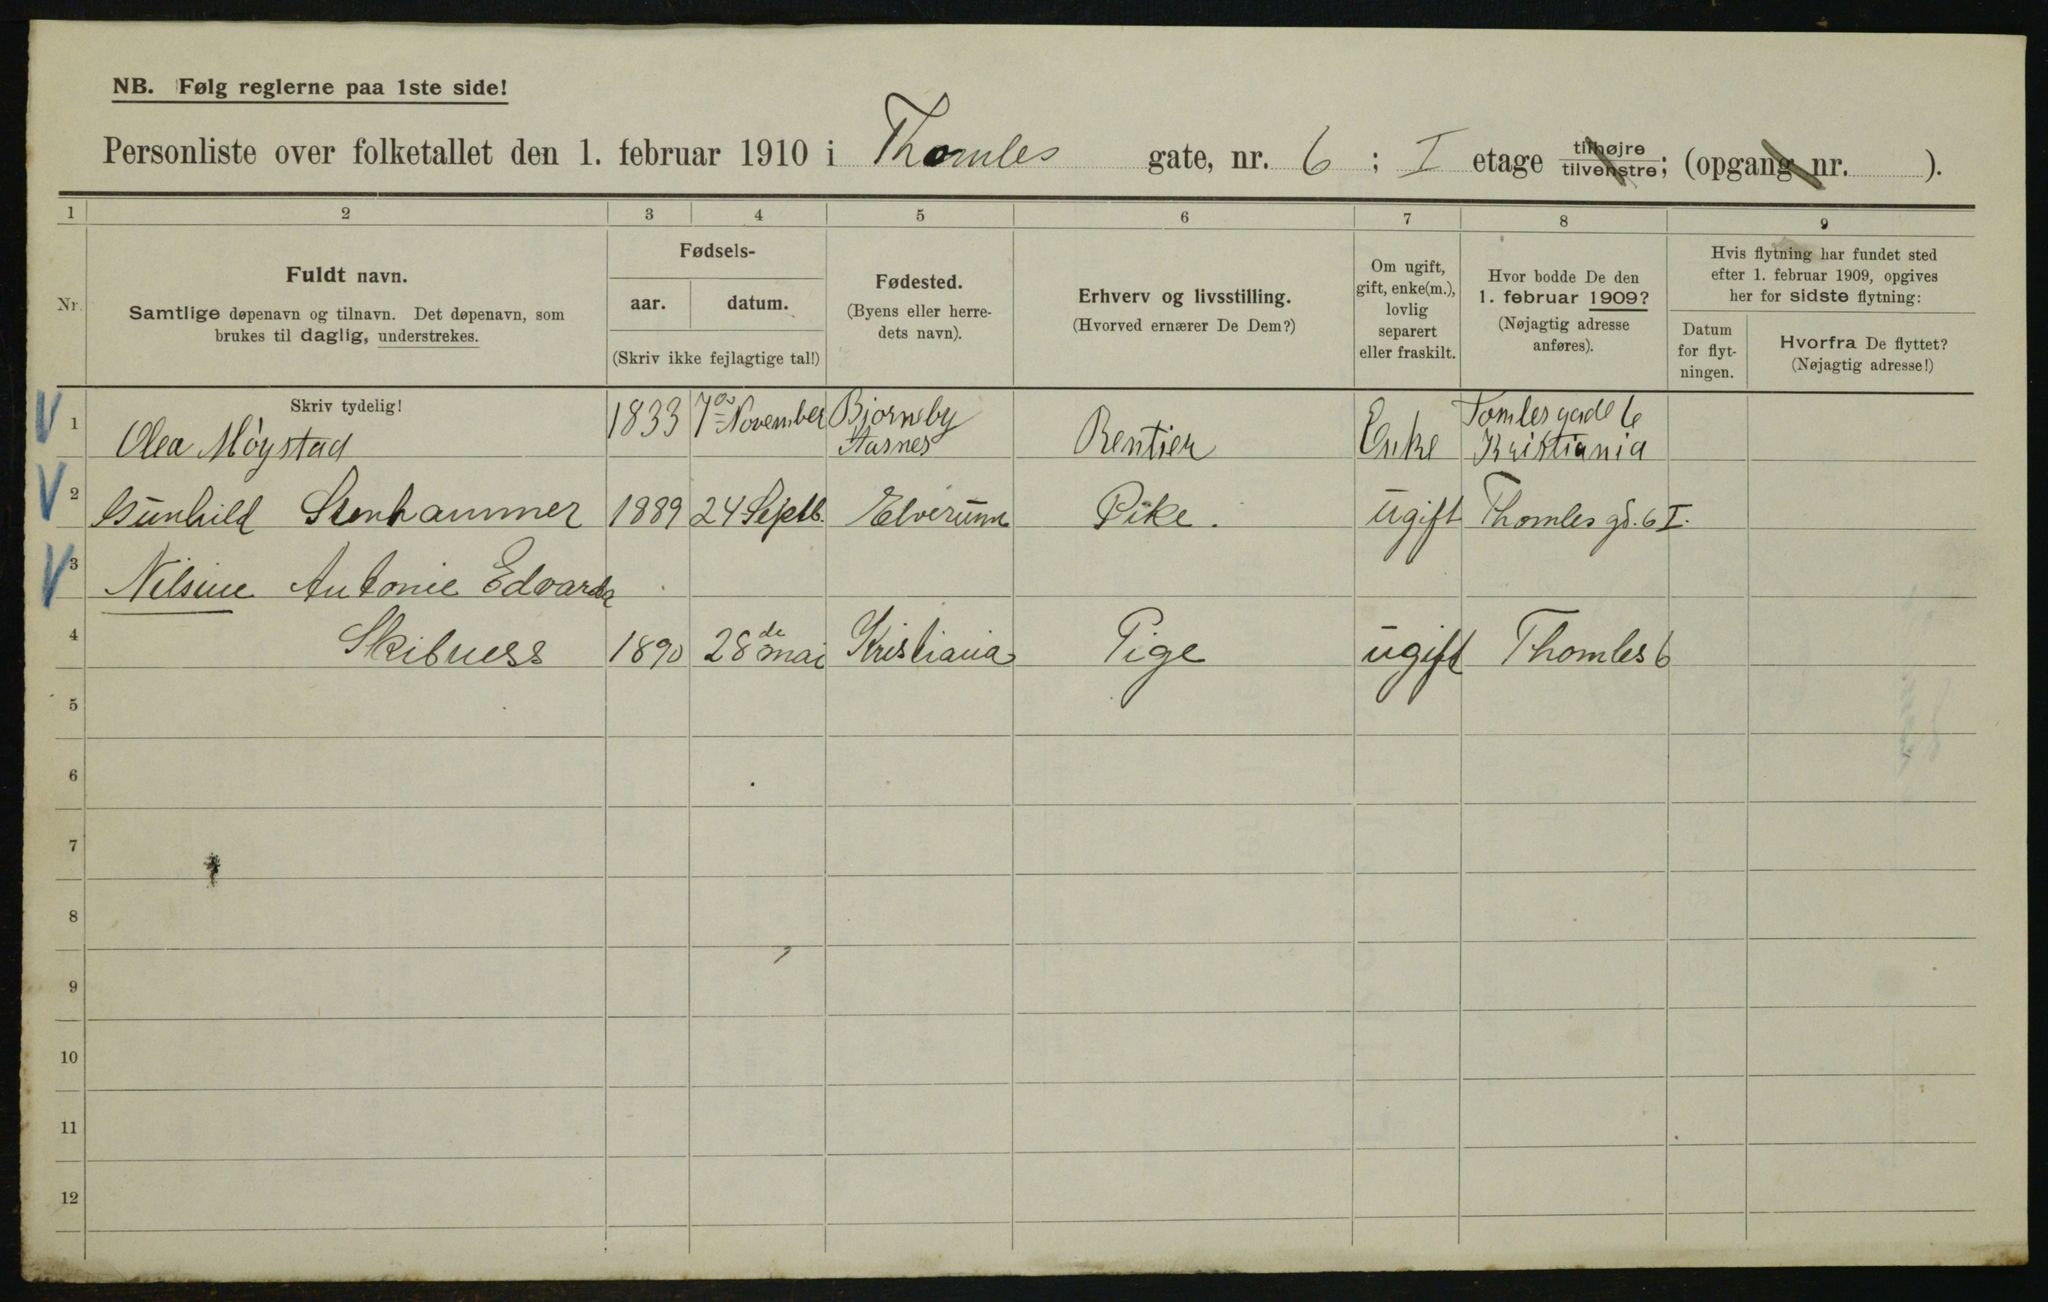 NB. Følg reglerne paa 1ste side!
Personliste over folketallet den 1. februar 1910 i Thomles gate, nr. 6 ; I etage tilhøjre tilvenstre; (opgang nr. ).
1 2 3 4 5 6 7 8 9
Nr.
Fuldt navn.
Samtlige døpenavn og tilnavn. Det døpenavn, som
brukes til daglig, understrekes.
Fødsels-
aar. datum.
(Skriv ikke fejlagtige tal!)
Fødested.
(Byens eller herre-
dets navn).
Erhverv og livsstilling.
(Hvorved ernærer De Dem?)
Om ugift,
gift, enke(m.),
lovlig
separert
eller fraskilt.
Hvor bodde De den
1. februar 1909?
(Nøjagtig adresse
anføres).
Hvis flytning har fundet sted
efter 1. februar 1909, opgives
her for sidste flytning:
Datum
for flyt-
ningen.
Hvorfra De flyttet?
(Nøjagtig adresse!)
Skriv tydelig!
1 Olea Möystad 1833 7 November Bjorneby Aarnes Rentier Enke Tomlesgade 6 Kristiania
2 Gunhild Stenhammer 1889 24 Septb. Elverum Pike. ugift Thomles gd. 6 I.
3 Nilsine Antonie Edvarda
4 Skibness 1890 28de mai Kristiania Pige ugift Thomles 6
5
6
7
8
9
10
11
12